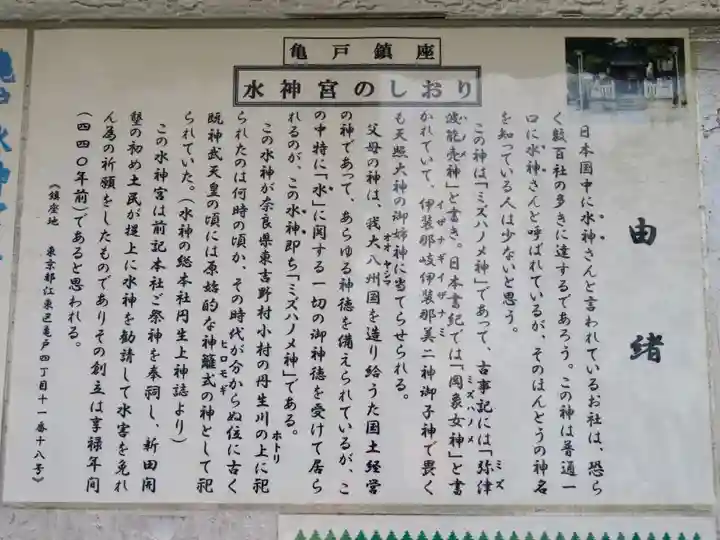 亀戸鎮座
水神宮のしおり
由緒
日本国中に水神さんと言われているお社は、恐ら
く数百社の多きに達するであろう。この神は普通一
口に水神さんと呼ばれているが、そのほんとうの神名
を知っている人は少ないと思う。
この神は「ミズハノメ神」であって、古事記には「弥津
ミズ
波能売神」と書き。日本書紀では「岡象女神」と書
ハノメ
ミズハノメ
かれていて、伊装那岐伊装那美二神御子神で畏く
イザナギイザナミ
も天照大神の御姉神に当てらせられる。
父母の神は、我大八州国を造り給うた国土経営
オオヤシマ
の神であって、あらゆる神徳を備えられているが、こ
の中特に「水」に関する一切の御神徳を受けて居ら
れるのが、この水神即ち「ミズハノメ神」である。
この水神が奈良県東吉野村小村の丹生川の上に祀
ホトリ
られたのは何時の頃か、その時代が分からぬ位に古く
既神武天皇の頃には原始的な神籬式の神として祀
ヒロモギ
られていた。(水神の総本社円生上神誌より)
この水神宮は前記本社ご祭神を奉祠し、新田開
墾の初め土民が堤上に水神を勧請して水害を免れ
ん為の祈願をしたものでありその創立は享禄年間
(四四〇年前)であると思われる。
《鎮座地 東京都江東区亀戸四丁目十一番十八号》